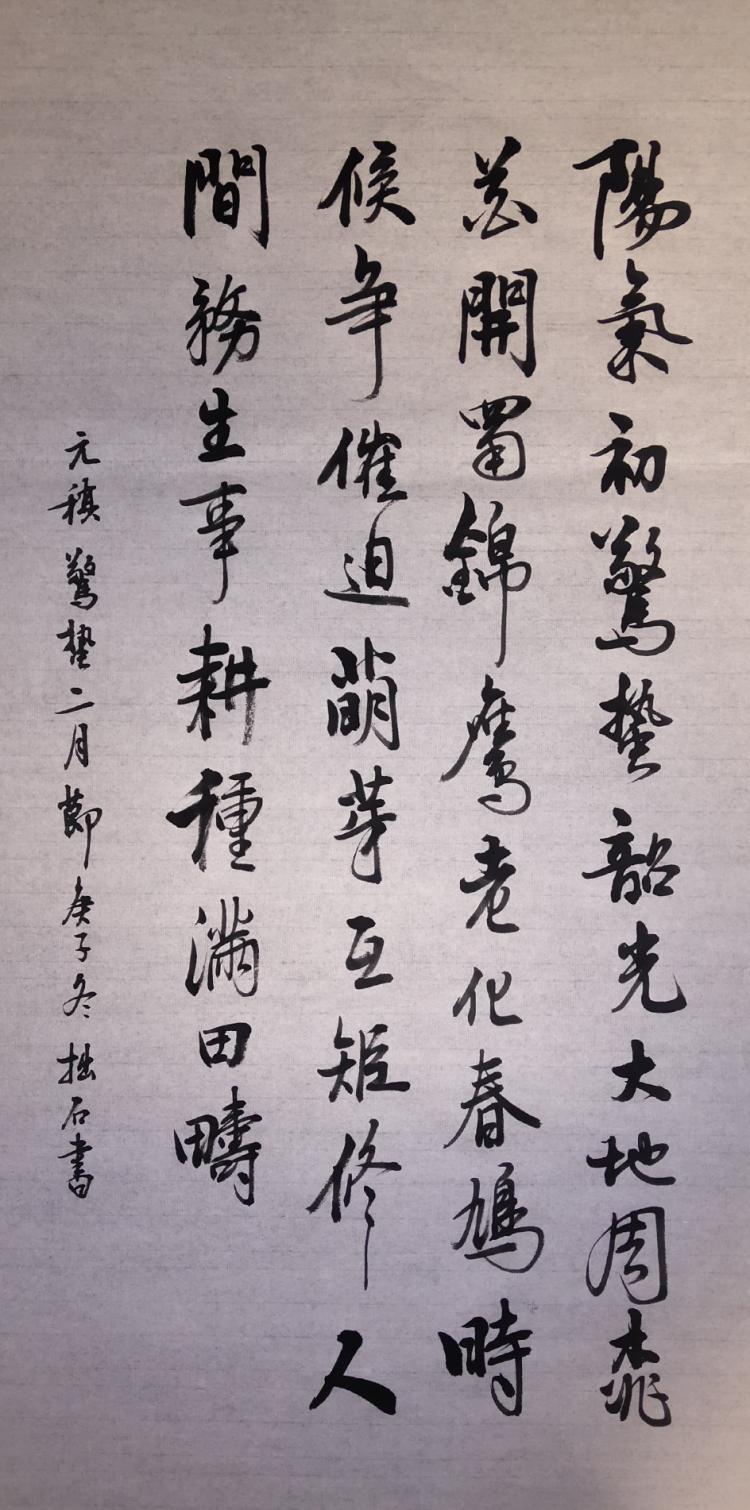 陽氣初驚蟄韶光大地周桃
花開蜀錦鷹老化春鳩時
候争催迫萌芽互矩修人
間務生事耕種滿田疇
元稹驚蟄二月節庚子冬拙石書